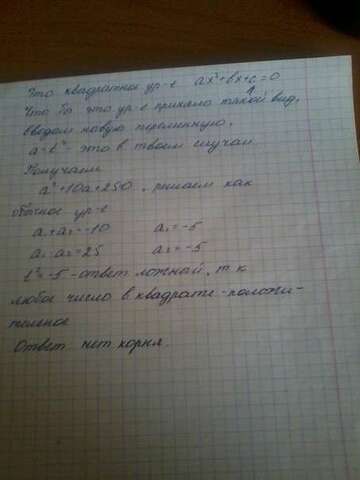 Это квадратное ур-е ax²+bx+c=0
Что бы это ур-е приняло такой вид,
введем новую переменную.
a=t² - это в твоем случаи
Получаем
a²+10a+25=0, решаем как
обычное ур-е
a₁+a₂=-10 a₁=-5
a₁·a₂=25 a₂=-5
t²=-5 - ответ ложной, т к
любое число в квадрате - положи-
тельное
Ответ нет корня.